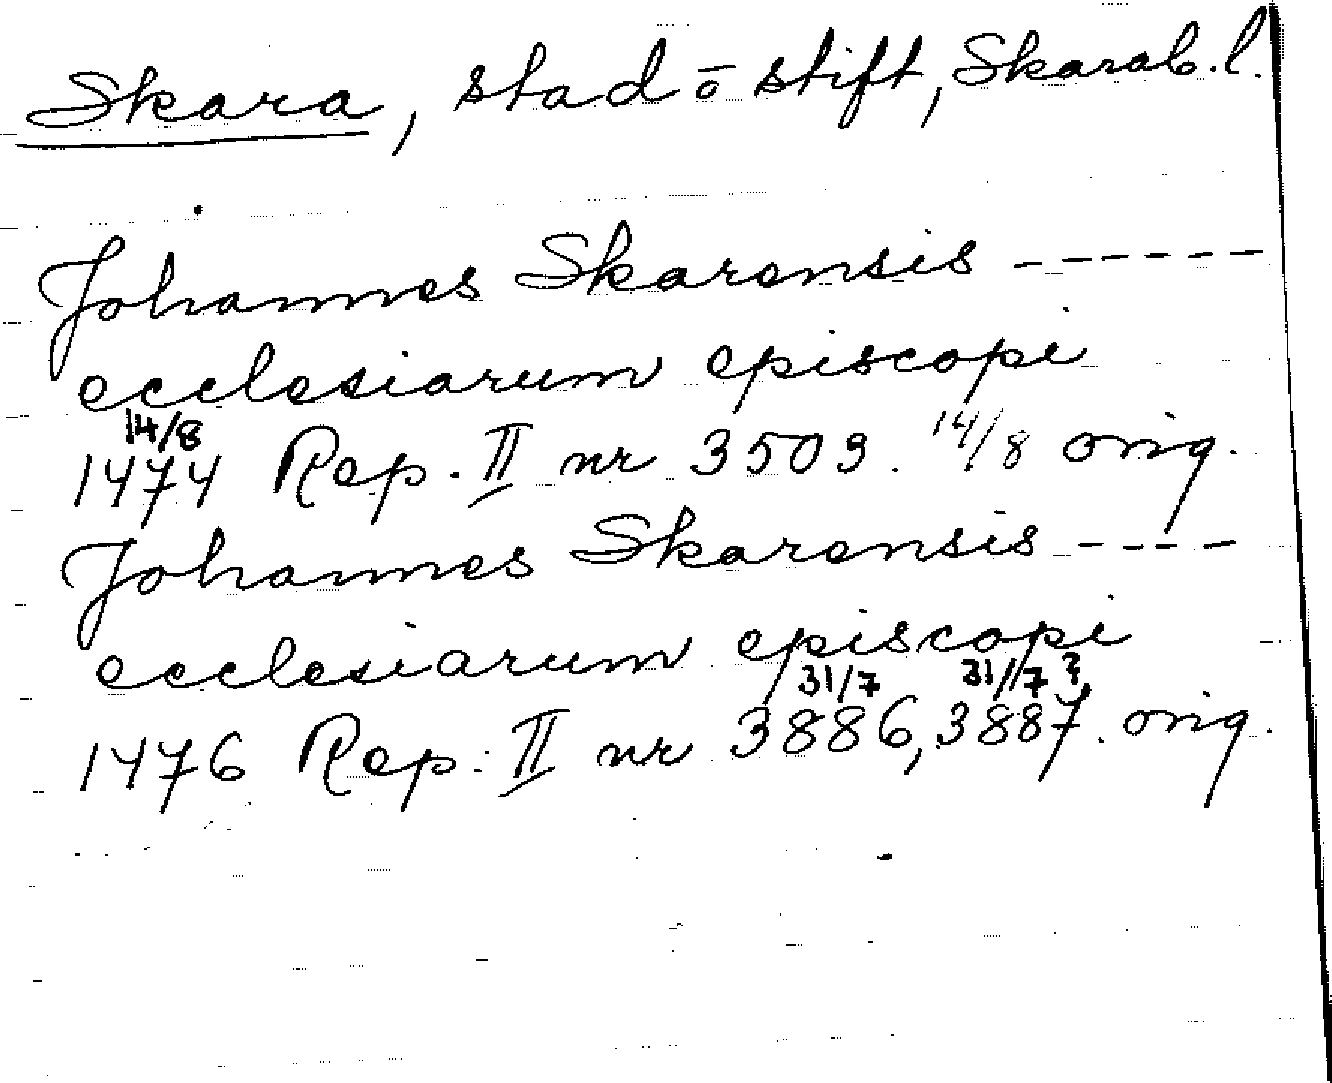 Skara, stad o stift, Skarab. l.
Johannes Skarensis ------
ecclesiarum episcopi
14/8
1474 Rep. II nr 3503. 14/8 orig.
Johannes Skarensis ----
ecclesiarum episcopi
31/7 31/7?
1476 Rep. II nr 3886, 3887. orig.